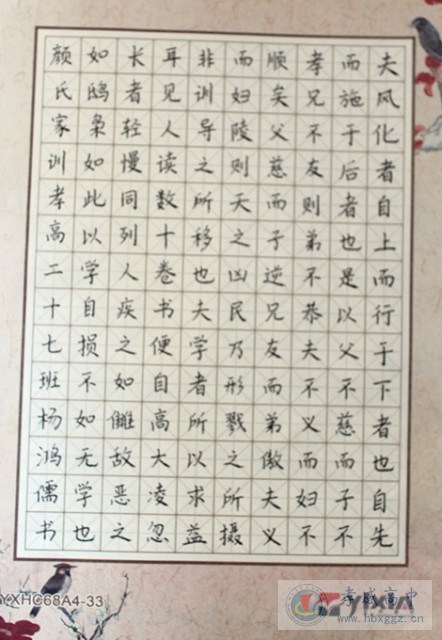 夫风化者自上而行于下者也自先
而施于后者也是以父不慈而子不
孝兄不友则弟不恭夫不义而妇不
顺矣父慈而子逆兄友而弟傲夫义
而妇陵则天之凶民乃形戮之所摄
非训导之所移也夫学者所以求益
耳见人读数十卷书便自高大凌忽
长者轻慢同列人疾之如雠敌恶之
如鸱枭如此以学自损不如无学也
颜氏家训孝高二十七班杨鸿儒书
YXHC68A4-33
孝感高中
www.hbxggz.cn